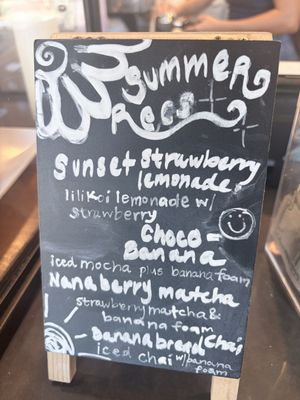 Summer
Recs
Sunset Strawberry
lemonade
lilikoi lemonade w/
strawberry
Choco-
Banana
iced mocha plus banana foam
Nanaberry matcha
strawberry matcha &
banana foam
Bananabread Chai
iced chai w/ banana
foam